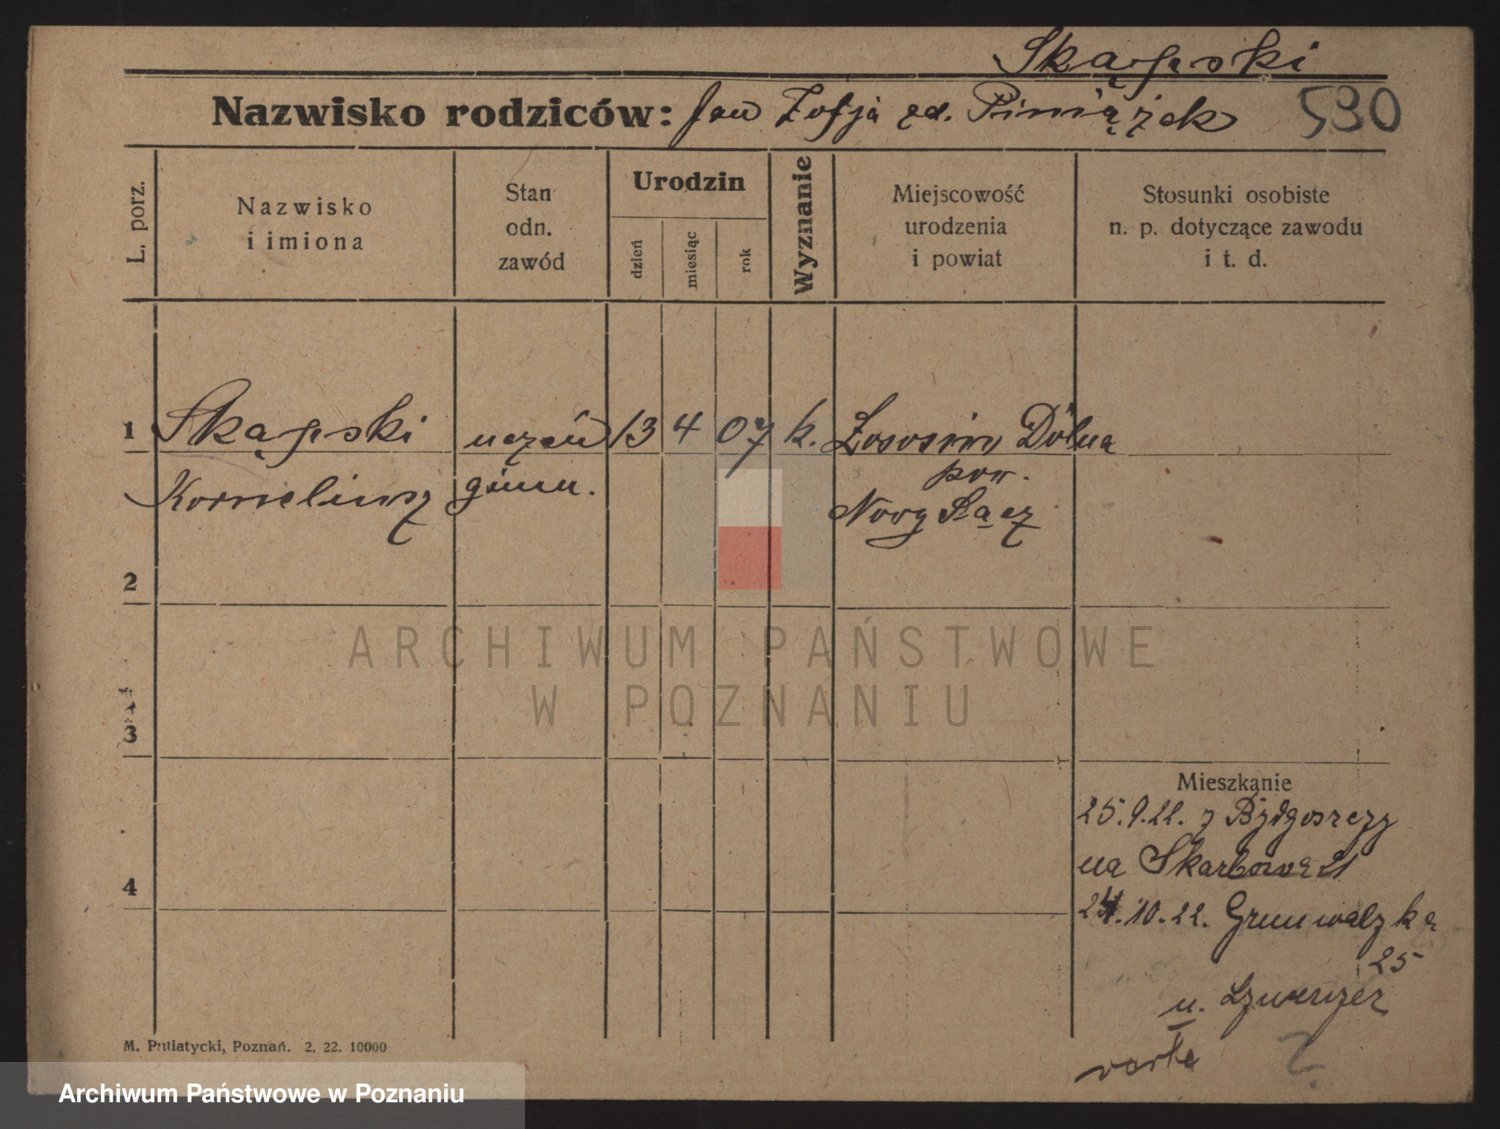 Skąpski
Nazwisko rodziców: Jan Zofja zd. Piniążek 530
L. porz.
Nazwisko
i imiona
Stan
odn.
zawód
Urodzin
dzień
miesiąc
rok
Wyznanie
Miejscowość
urodzenia
i powiat
Stosunki osobiste
n. p. dotyczące zawodu
i t. d.
1 Skąpski uczeń 13 4 07 k. Zososin Dolna
Korneliusz gimn. pow.
Nowy Sącz
2
3
ARCHIWUM PAŃSTWOWE
W POZNANIU
Mieszkanie
25.9.22. z Bydgoszczy
na Skarbowa 21
4
24.10.22. Grunwaldzka
25
u.
verte
M. Putiatycki, Poznań. 2. 22. 10000
Archiwum Państwowe w Poznaniu